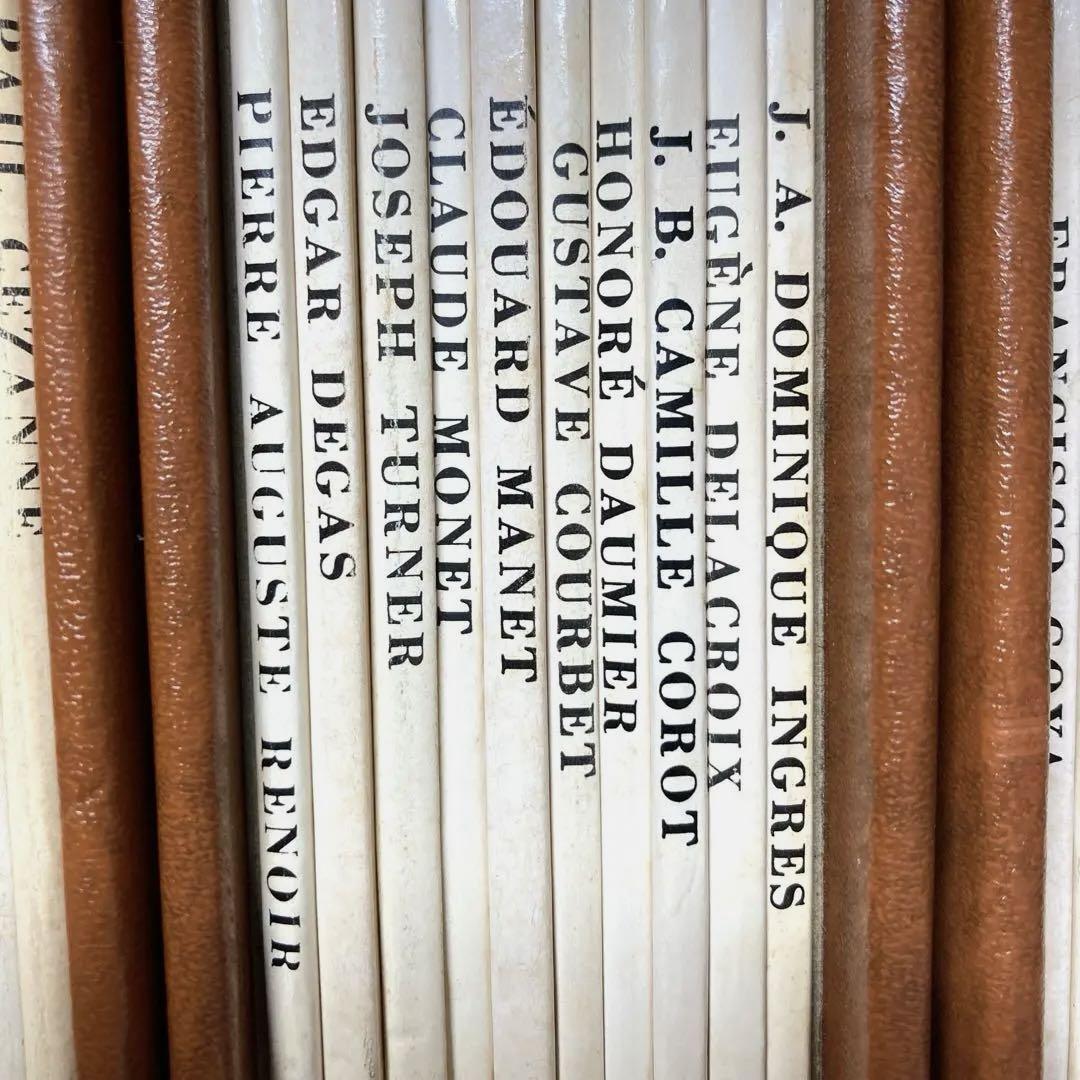 PAUL CEZANNE
PIERRE AUGUSTE RENOIR
EDGAR DEGAS
JOSEPH TURNER
CLAUDE MONET
ÉDOUARD MANET
GUSTAVE COURBET
HONORÉ DAUMIER
J. B. CAMILLE COROT
EUGÈNE DELACROIX
J. A. DOMINIQUE INGRES
FRANCISCO GOYA